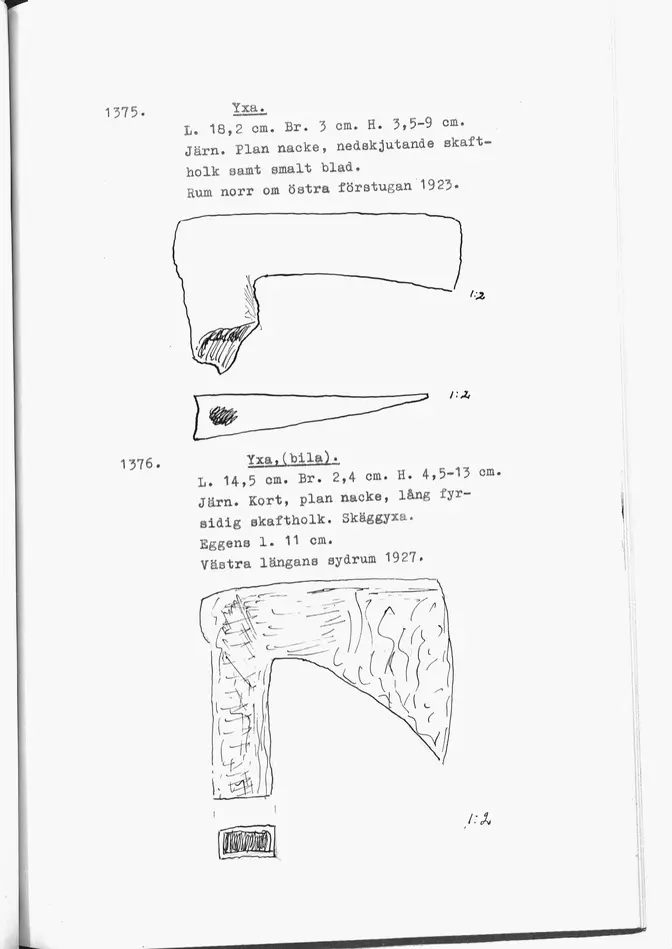 1375. Yxa.
L. 18,2 cm. Br. 3 cm. H. 3,5-9 cm.
Järn. Plan nacke, nedskjutande skaft-
holk samt smalt blad.
Rum norr om östra förstugan 1923.
1:2
1:2
1376. Yxa,(bila).
L. 14,5 cm. Br. 2,4 cm. H. 4,5-13 cm.
Järn. Kort, plan nacke, lång fyr-
sidig skaftholk. Skäggyxa.
Eggens l. 11 cm.
Västra längans sydrum 1927.
1:2